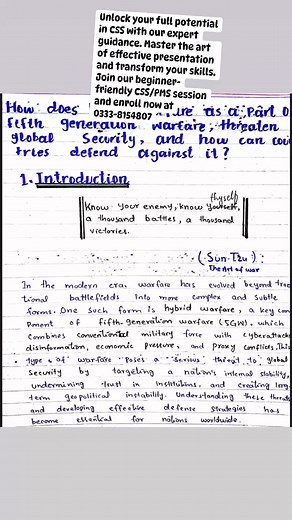 Unlock your full potential
in CSS with our expert
guidance. Master the art
of effective presentation
and transform your skills.
Join our beginner-
friendly CSS/PMS session
and enroll now at
0333-8154807
How does re as a Part O
fifth generation warfare, threaten
global Security, and how can cou
tries defend against it?
1. Introduction
thyself
Know your enemy, know yourself,
a thousand battles, a thousand
victories.
(Sun-Tzu)
The Art of war
In the modern era, warfare has evolved beyond trad
tional battlefields into more complex and subtle
forms. One such form is hybrid warfare, a key com
ponent of fifth-generation warfare (5GW), which
combines conventional military force with cyberattack
disinformation, economic pressure, and proxy conflicts. This
type of warfare poses a serious threat to global
Security by targeting a nation's internal stability,
undermining trust in institutions, and creating long
term geopolitical instability. Understanding these threats
and developing effective defense strategies has
become essential for nations worldwide.